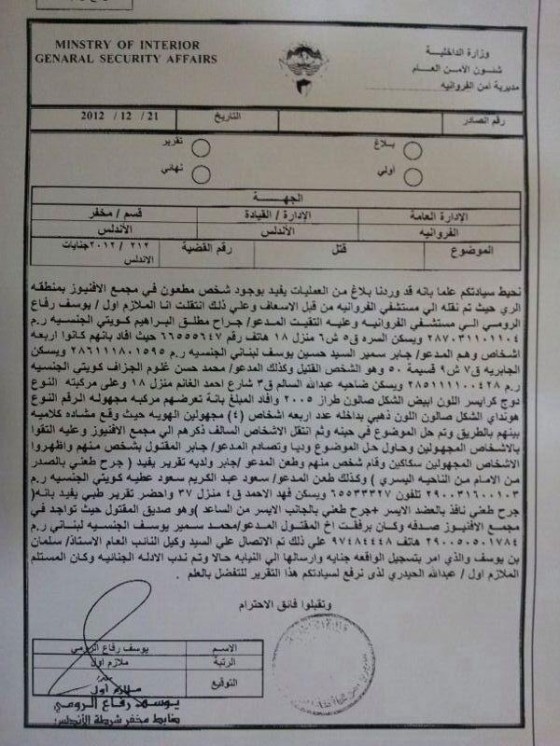 MINSTRY OF INTERIOR
GENARAL SECURITY AFFAIRS
وزارة الداخلية
شئون الأمن العام
مديرية امن الفروانيه
رقم الصادر
التاريخ
21 / 12 / 2012
بلاغ
تقرير
أولي
نهائي
الجهـــــــة
الإدارة العامة
الإدارة / القيادة
قسم / مخفر
الفروانيه
الأندلس
الأندلس
الموضوع
قتل
رقم القضية
٢١٢ / ٢٠١٢جنايات
الاندلس
نحيط سيادتكم علما بانه قد وردنا بلاغ من العمليات يفيد بوجود شخص مطعون في مجمع الافنيوز بمنطقه
الري حيث تم نقله الي مستشفي الفروانيه من قبل الاسعاف وعلي ذلك انتقلت انا الملازم اول / يوسف رفاع
الرومي الي مستشفي الفروانيه وعليه التقيت المدعو/ جراح مطلق البراهيم كويتي الجنسيه ر.م
٢٨٧٠٣١١٠١١٠٤ ويسكن السره ق٥ ش٦ منزل ١٨ هاتف رقم ٦٦٥٥٥٦٤٧ حيث أفاد بانهم كانوا اربعه
اشخاص وهم المدعو/ جابر سمير السيد حسين يوسف لبناني الجنسيه ر.م ٢٨٦١١١٨٠١٥٩٥ ويسكن
الجابريه ق٧ ش٩ قسيمة ٥٠ وهو الشخص القتيل وكذلك المدعو/ محمد حسن غلوم الجزاف كويتي الجنسيه
ر.م ٢٨٥١١١١٠٠٤٢٨ ويسكن ضاحيه عبدالله السالم ق٣ شارع احمد الغانم منزل ١٨ وعلى مركبته النوع
دوج كرايسر اللون ابيض الشكل صالون طراز ٢٠٠٥ وأفاد المبلغ بانة تعرضهم مركبه مجهوله الرقم النوع
هونداي الشكل صالون اللون ذهبي بداخله عدد اربعه اشخاص (٤) مجهولين الهويه حيث وقع مشاده كلاميه
بينهم بالطريق وتم حل الموضوع في حينه وثم انتقل الاشخاص السالف ذكرهم الي مجمع الافنيوز وعليه التقوا
بالاشخاص المجهولين وحاول حل الموضوع وديا وتصادم المدعو/ جابر المقتول بشخص منهم واظهروا
الاشخاص المجهولين سكاكين وقام شخص منهم وطعن المدعو /جابر ولديه تقرير يفيد ( جرح طعني بالصدر
من الامام من الناحيه اليسري ) وكذلك طعن المدعو/ سعود عبد الكريم سعود عطيه كويتي الجنسيه ر.م
٢٩٠٠٣١٦٠٠١٠٣ تلفون ٦٥٥٣٣٣٢٧ ويسكن فهد الاحمد ق١ منزل ٣٧ واحضر تقرير طبي يفيد بانه(
جرح طعني نافذ بالعضد الايسر +جرح طعني بالجانب الايسر من الساعد )وهو صديق المقتول حيث تواجد في
مجمع الافنيوز صدفه وكان برفقت اخ المقتول المدعو/محمد سمير يوسف الجنسيه لبناني ر.م
٢٩٠٠٥٠٥٠١٧٨٤ هاتف ٩٧٤٨٤٤٤٨ علي ذلك تم الاتصال علي السيد وكيل النائب العام الاستاذ/ سلمان
بن يوسف والذي امر بتسجيل الواقعه جنايه وارسالها الي النيابه حالا وتم ندب الادله الجنائيه وكان المستلم
الملازم اول / عبدالله الحيدري لذى نرفع لسيادتكم هذا التقرير للتفضل بالعلم .
وتقبلوا فائق الاحترام
الاسم
يوسف رفاع الرومي
الرتبة
ملازم اول
التوقيع
ملازم أول
يوسف رفاع الرومي
ضابط مخفر شرطة الأندلس